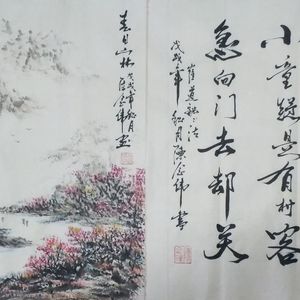 小童疑是有村客
急向门去却关
崔道融诗
戊戌年秋月陈金伟书
春日山林
戊戌年秋月
画